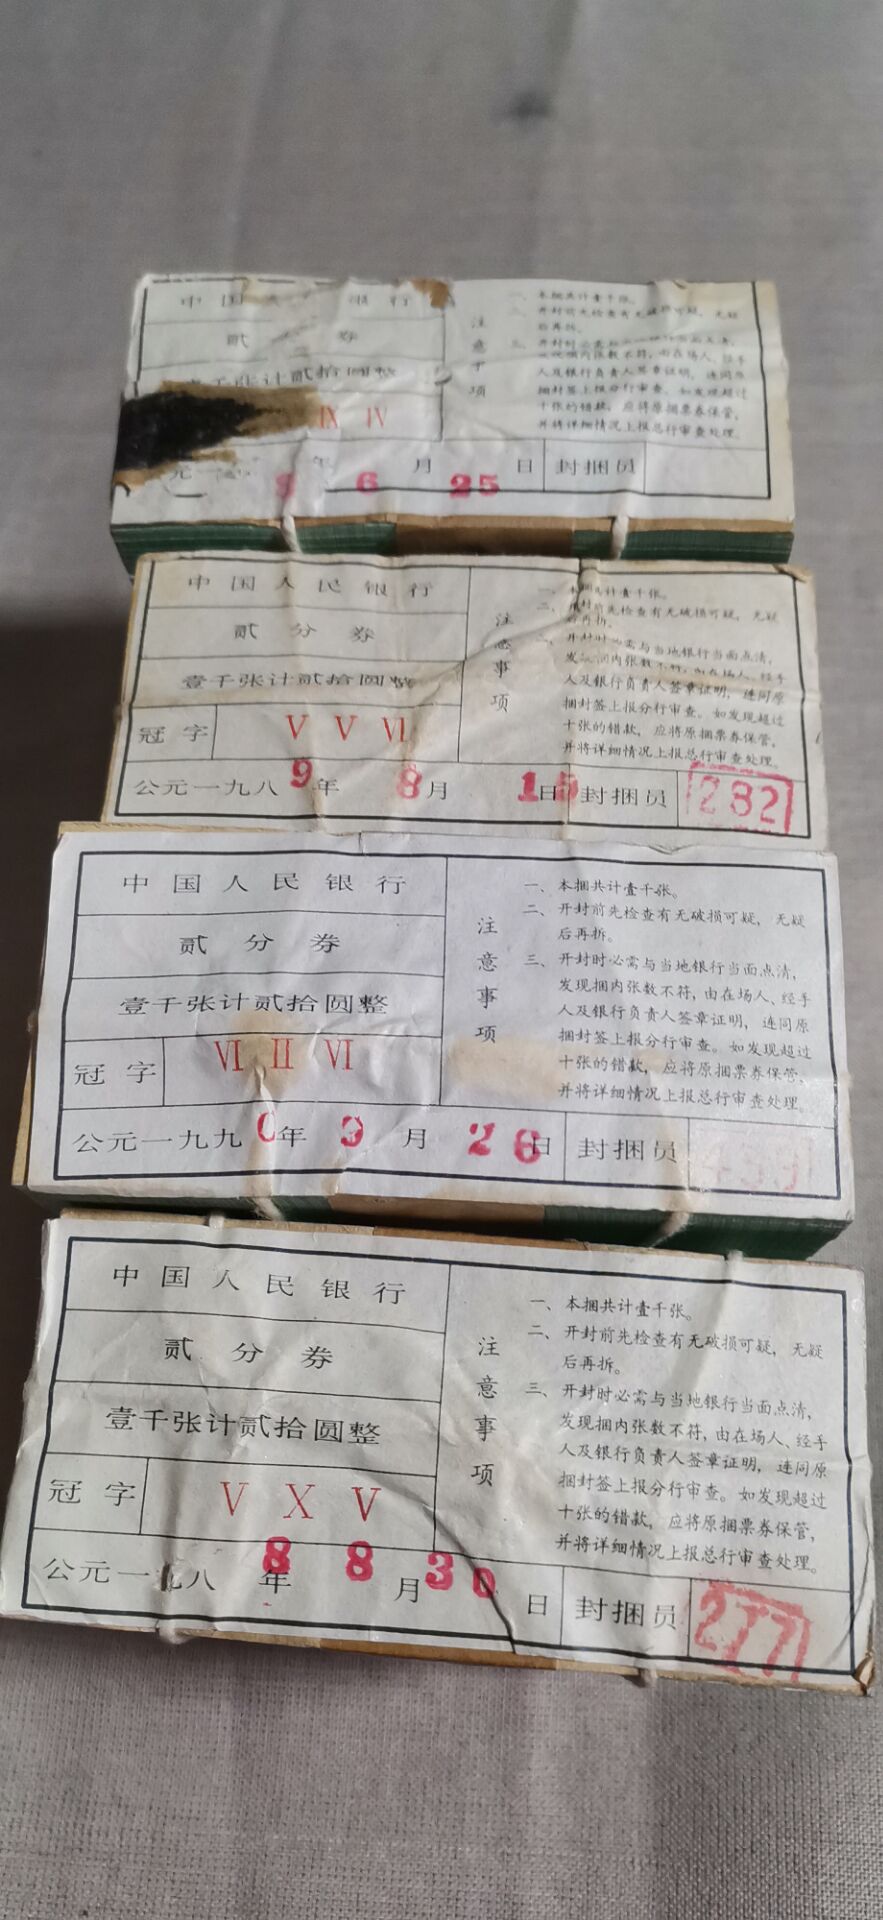 中国 银行
贰 券
壹千张计贰拾圆整
IX IV
元一 9年 6月 25日 封捆员
注意事项
一、本捆共计壹千张。
二、开封前先检查有无破损可疑，无疑
后再拆。
三、开封时必需
张数不符，由在场人、经手
人及银行负责人签章证明，连同原
捆封签上报分行审查。如发现超过
十张的错款，应将原捆票券保管，
并将详细情况上报总行审查处理。
中国人民银行
贰分券
壹千张计贰拾圆整
冠字 V V VI
公元一九八9年 8月 15日 封捆员 282
注意事项
一、本捆共计壹千张。
二、开封前先检查有无破损可疑，无疑
后再拆。
三、开封时必需与当地银行当面点清，
发现捆内张数不符，由在场人、经手
人及银行负责人签章证明，连同原
捆封签上报分行审查。如发现超过
十张的错款，应将原捆票券保管，
并将详细情况上报总行审查处理。
中国人民银行
贰分券
壹千张计贰拾圆整
冠字 VI II VI
公元一九九0年 9月 26日 封捆员
注意事项
一、本捆共计壹千张。
二、开封前先检查有无破损可疑，无疑
后再拆。
三、开封时必需与当地银行当面点清，
发现捆内张数不符，由在场人、经手
人及银行负责人签章证明，连同原
捆封签上报分行审查。如发现超过
十张的错款，应将原捆票券保管，
并将详细情况上报总行审查处理。
中国人民银行
贰分券
壹千张计贰拾圆整
冠字 V X V
公元一九八8年 8月 30日 封捆员 277
注意事项
一、本捆共计壹千张。
二、开封前先检查有无破损可疑，无疑
后再拆。
三、开封时必需与当地银行当面点清，
发现捆内张数不符，由在场人、经手
人及银行负责人签章证明，连同原
捆封签上报分行审查。如发现超过
十张的错款，应将原捆票券保管，
并将详细情况上报总行审查处理。